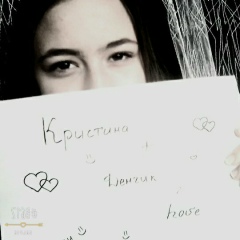 Кристина
+
Ленчик
love